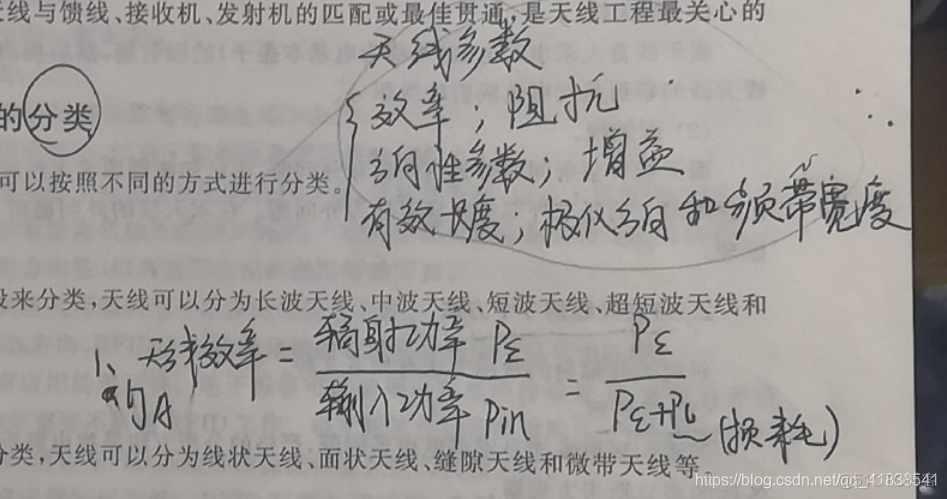 线与馈线、接收机、发射机的匹配或最佳贯通，是天线工程最关心的
天线参数
的分类
效率；阻抗
方向性参数；增益
可以按照不同的方式进行分类。
有效长度；极化方向和频带宽度
段来分类，天线可以分为长波天线、中波天线、短波天线、超短波天线和
1、天线效率 = 辐射功率 PΣ / 输入功率 Pin = PΣ / PΣ+PL (损耗)
ηA
分类，天线可以分为线状天线、面状天线、缝隙天线和微带天线等。
https://blog.csdn.net/qq_41838541